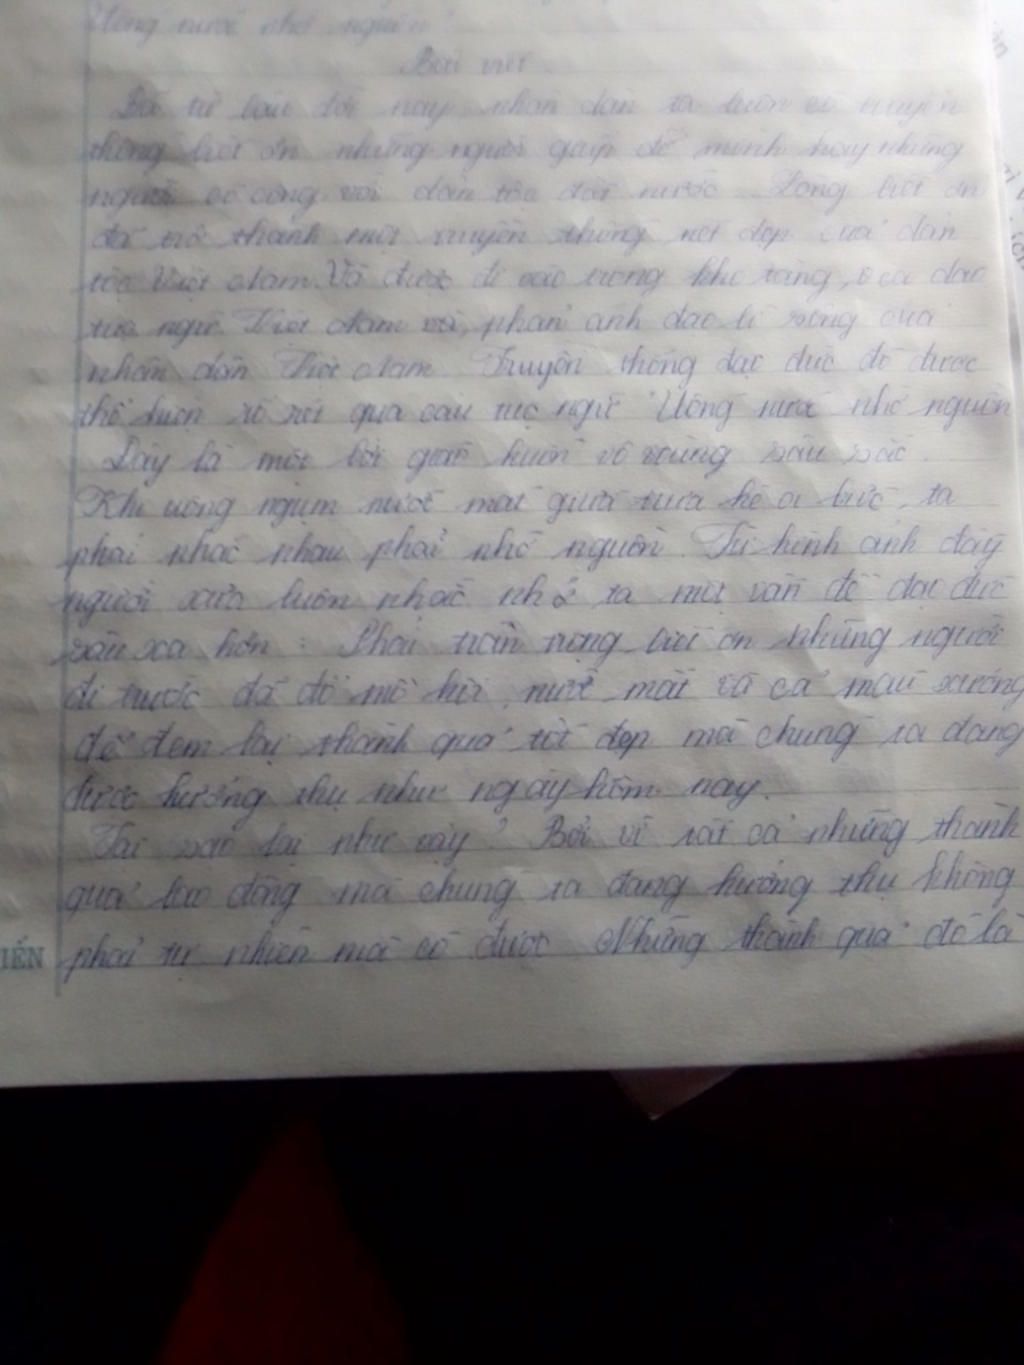 Uống nước nhớ nguồn
Bài viết
Đã từ lâu đời nay nhân dân ta luôn có truyền
thống biết ơn những người giúp đỡ mình hay những
người có công với dân tộc đất nước. Lòng biết ơn
đã trở thành một truyền thống nét đẹp của dân
tộc Việt Nam. Và được đi vào trong kho tàng, ca dao
tục ngữ Việt Nam và, phản ánh đạo lí sống của
nhân dân Việt Nam. Truyền thống đạo đức đó được
thể hiện rõ rét qua câu tục ngữ "Uống nước nhớ nguồn
Đây là một lời giáo huấn vô cùng sâu sắc.
Khi uống ngụm nước mát giữa trưa hè ơi bức, ta
phải nhắc nhau phải nhớ nguồn. Từ hình ảnh đấy
người xưa luôn nhắc nhở ta một vấn đề đạo đức
sâu xa hơn: Phải trân trọng biết ơn những người
đi trước đã đổ mồ hôi, nước mắt và cả máu xương
để đem lại thành quả tốt đẹp mà chúng ta đang
được hưởng thụ như ngày hôm nay.
Tại sao lại như vậy? Bởi vì tất cả những thành
quả lao động mà chúng ta đang hưởng thụ không
phải tự nhiên mà có được. Những thành quả đó là
IẾN